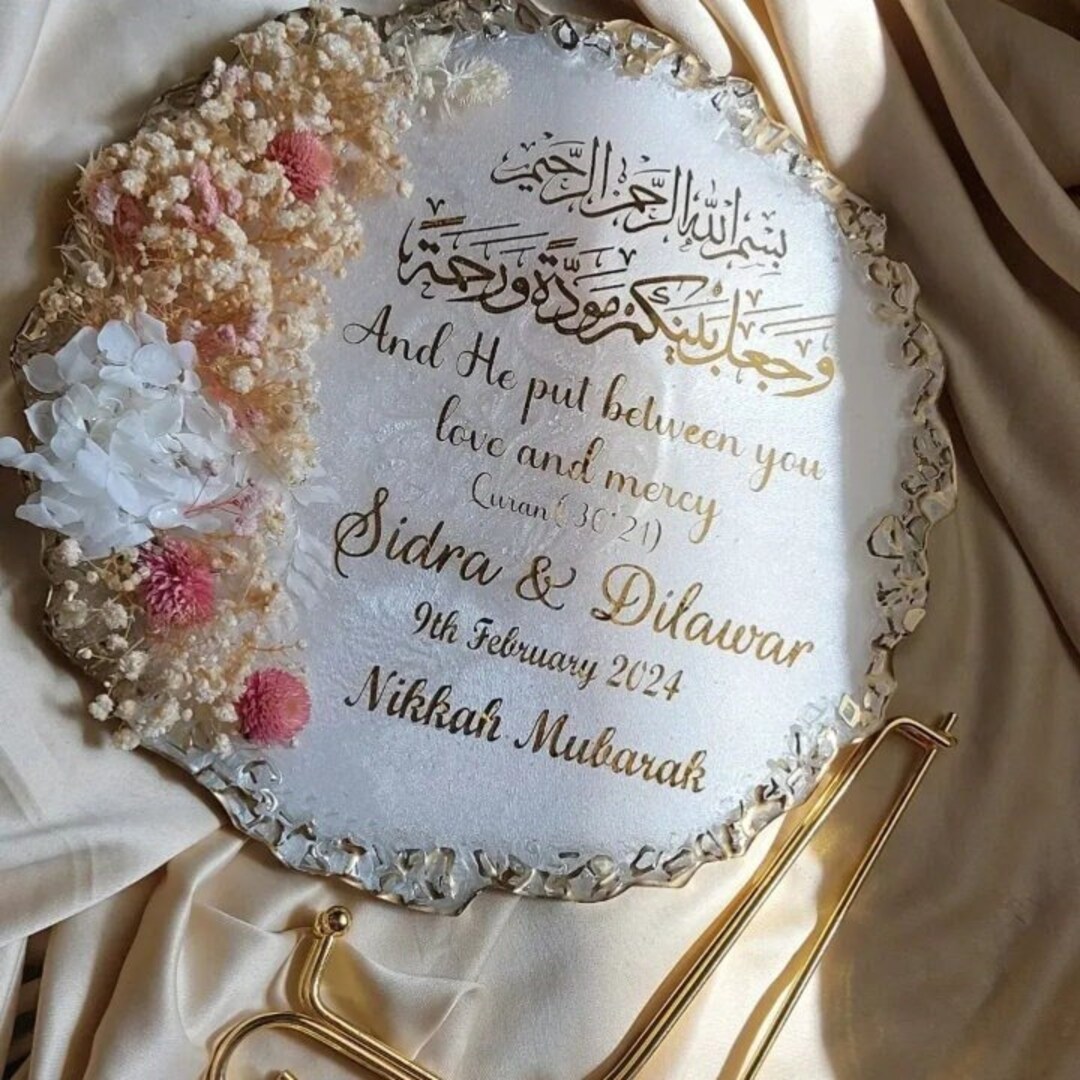 بِسْمِ اللهِ الرَّحْمٰنِ الرَّحِيْمِ
وَجَعَلَ بَيْنَكُمْ مَوَدَّةً وَرَحْمَةً
And He put between you
love and mercy
Quran (30:21)
Sidra & Dilawar
9th February 2024
Nikkah Mubarak